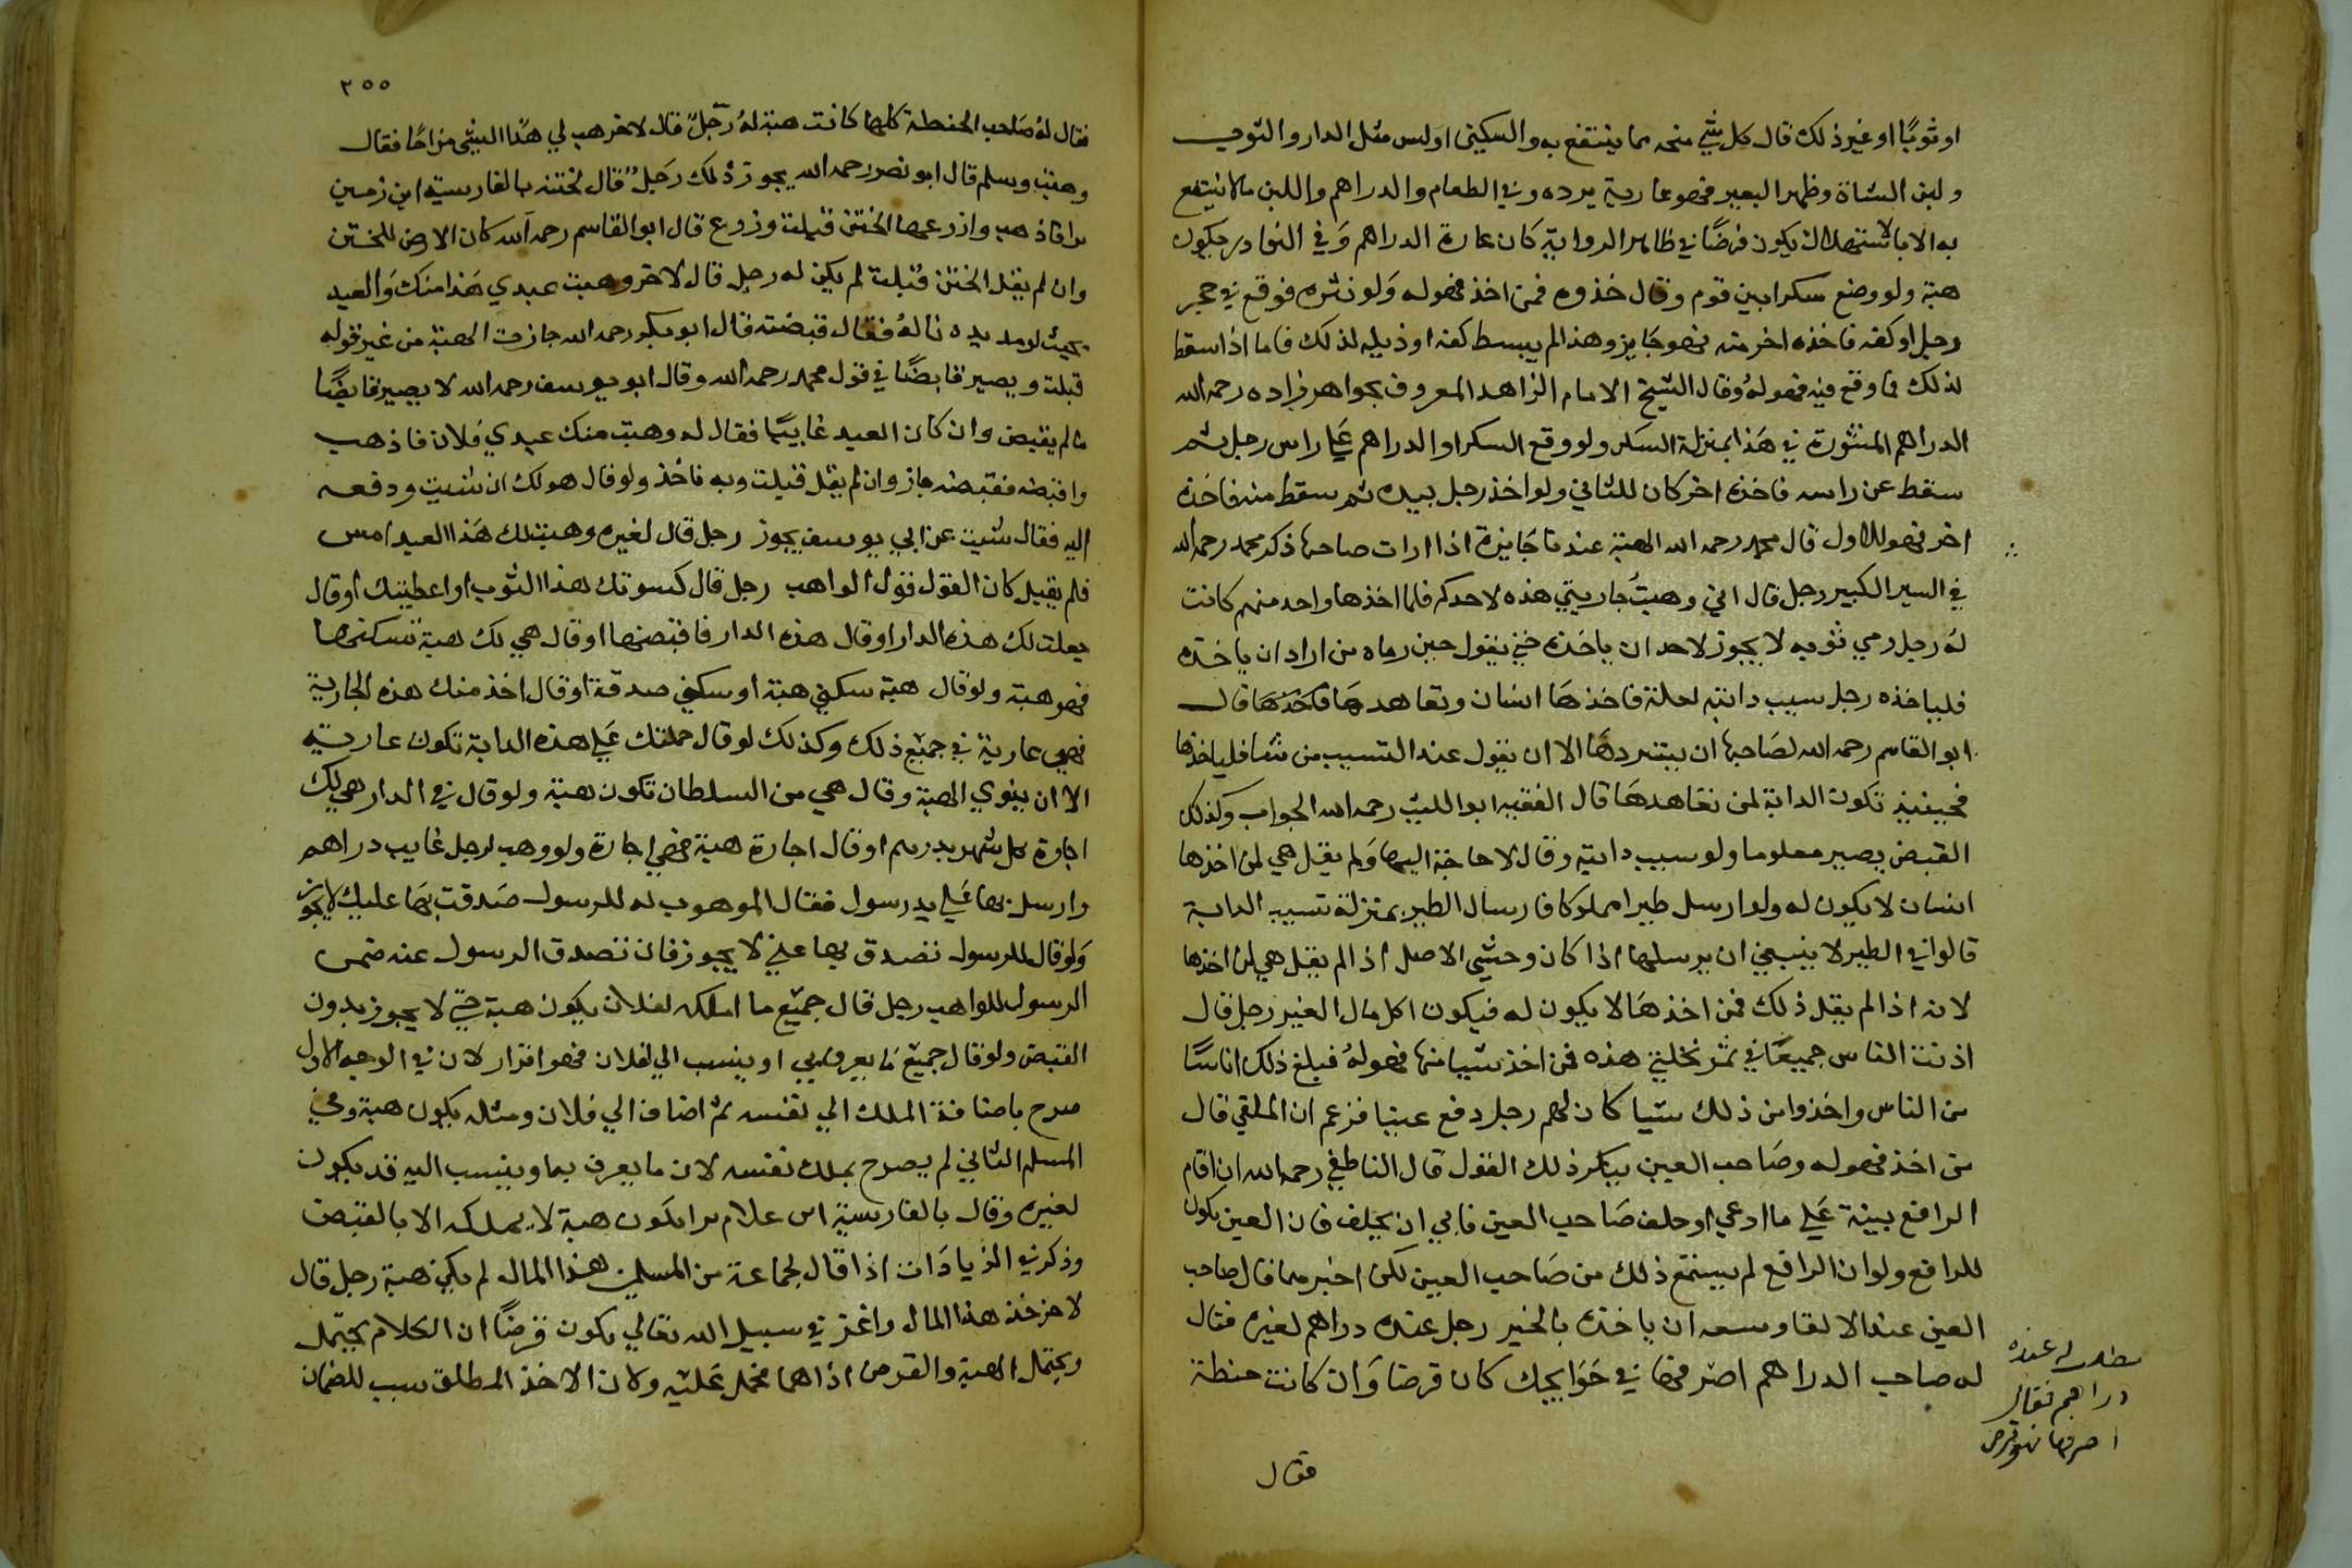 او ثوبا او غير ذلك قال كل شي منحه مما ينتفع به والسكيني اولبس مثل الدار والثوب
ولبن الشاة وظهر البعير فهو عارية يرده وفي الطعام والدراهم واللبن مالا ينتفع
به الا بالاستهلاك يكون قرضا في ظاهر الرواية كان عارة الدراهم وفي النوادر يكون
هبة ولو وضع سكرا بين قوم وقال خذوه فمن اخذ فهو له ولو نثره فوقع في حجر
رجل او كفه فاخذه اخر منه فهو جايز وهذا لم يبسط كفه او ذيله لذلك فاما اذا سقط
لذلك فما وقع فيه فهو له وقال الشيخ الامام الزاهد المعروف بجواهر زاده رحمه الله
الدراهم المنثورة في هذا بمنزلة السكر ولو وقع السكر او الدراهم علي راس رجل ثم
سقط عن راسه فاخذه اخر كان للثاني ولو اخذ رجل بيده ثم سقط منه فاخذه
اخر فهو للاول قال محمد رحمه الله الهبة عندنا جايزة اذا ارات صاحبها ذكر محمد رحمه الله
في السير الكبير رجل قال اني وهبت جاريتي هذه لاحدكم فلما اخذها واحد منهم كانت
له رجل رمي ثوبه لا يجوز لاحد ان ياخذه حتي يقول حين رماه من اراد ان ياخذه
فلياخذه رجل سيب دابته لعلة فاخذها انسان وتعاهدها فاخذها قال
ابو القاسم رحمه الله لصاحبها ان يستردها الا ان يقول عند التسيب من شا فلياخذها
فحينيذ تكون الدابة لمن تعاهدها قال الفقيه ابو الليث رحمه الله الجواب وكذلك
القبض يصير معلوما ولو سيب دابته وقال لا حاجة اليها ولم يقل هي لمن اخذها
انسان لا يكون له ولو ارسل طيرا مملوكا فارسال الطير بمنزلة تسيب الدابة
قالوا في الطير لا ينبغي ان يرسلها اذا كان وحشي الاصل اذا لم يقل هي لمن اخذها
لانه اذا لم يقل ذلك فمن اخذها لا يكون له فيكون اكل مال الغير رجل قال
اذنت الناس جميعا في ثمر نخلتي هذه فمن اخذ شيا منها فهو له فبلغ ذلك اناسا
من الناس واخذوا من ذلك شيا كان لهم رجل دفع عينا فزعم ان الملقي قال
من اخذ فهو له وصاحب العين ينكر ذلك القول قال الناطفي رحمه الله ان اقام
الرافع بينة علي ما ادعي او حلف صاحب العين فابي ان يحلف فان العين يكون
للرافع ولو ان الرافع لم يسمع ذلك من صاحب العين لكن اخبر مما قال صاحب
العين عند الالقا وسعه ان ياخذه بالخبر رجل عنده دراهم لغيره فقال
له صاحب الدراهم اصرفها في حوايجك كان قرضا وان كانت حنطة
مطلب له عنده
دراهم فقال
اصرفها فهو قرض
فقال
٢٥٥
فقال له صاحب الحنطة كلها كانت هبة له رجل قال لاخر هب لي هذا الشي مزاحا فقال
وهبت وسلم قال ابو نصر رحمه الله يجوز ذلك رجل قال لختنه بالفارسية اين زمين
ترا فاذهب وازرعها الختن قبلت وزرع قال ابو القاسم رحمه الله كان الارض للختن
وان لم يقل الختن قبلت لم يكن له رجل قال لاخر وهبت عبدي هذا منك والعبد
بحيث لو مد يده ناله فقال قبضته قال ابو بكر رحمه الله جازت الهبة من غير قوله
قبلت ويصير قابضا في قول محمد رحمه الله وقال ابو يوسف رحمه الله لا يصير قابضا
مالم يقبض وان كان العبد غايبا فقال له وهبت منك عبدي فلان فاذهب
واقبضه فقبضه جاز وان لم يقل قبلت وبه فاخذ ولو قال هو لك ان شيت ودفعه
اليه فقال شيت عن ابي يوسف يجوز رجل قال لغيره وهبتلك هذا العبد امس
فلم يقبل كان القول قول الواهب رجل قال كسوتك هذا الثوب او اعطيتك او قال
جعلت لك هذه الدار او قال هذه الدار فاقبضها او قال هي لك هبة تسكنها
فهو هبة ولو قال هبة سكني هبة او سكني صدقة او قال اخذ منك هذه الجارية
فهي عارية في جميع ذلك وكذلك لو قال حملتك علي هذه الدابة تكون عارية
الا ان ينوي الهبة وقال هي من السلطان تكون هبة ولو قال في الدار هي لك
اجارة كل شهر بدرهم او قال اجارة هبة فهي اجارة ولو وهب لرجل غايب دراهم
وارسل بها علي يد رسول فقال الموهوب له للرسول صدقت بها عليك لا يجوز
ولو قال للرسول تصدق بها علي لا يجوز فان تصدق الرسول عنه ضمن
الرسول للواهب رجل قال جميع ما املكه لفلان يكون هبة حتي لا يجوز بدون
القبض ولو قال جميع ما يعرف بي او ينسب الي لفلان فهو اقرار لان في الوجه الاول
صرح باضافة الملك الي نفسه ثم اضاف الي فلان ومثله يكون هبة وفي
المسلم الثاني لم يصرح بملك نفسه لان ما يعرف بما وينسب اليه قد يكون
لغيره وقال بالفارسية اين غلام ترا يكون هبة لا يملكه الا بالقبض
وذكر في الزيادات اذا قال لجماعة من المسلمين هذا المال لم يكن هبة رجل قال
لاخر خذ هذا المال واغز في سبيل الله تعالي يكون قرضا ان الكلام يحتمل
ويحتمل الهبة والقرض اذاهما فحمل عليه ولان الاخذ المطلق سبب للضمان